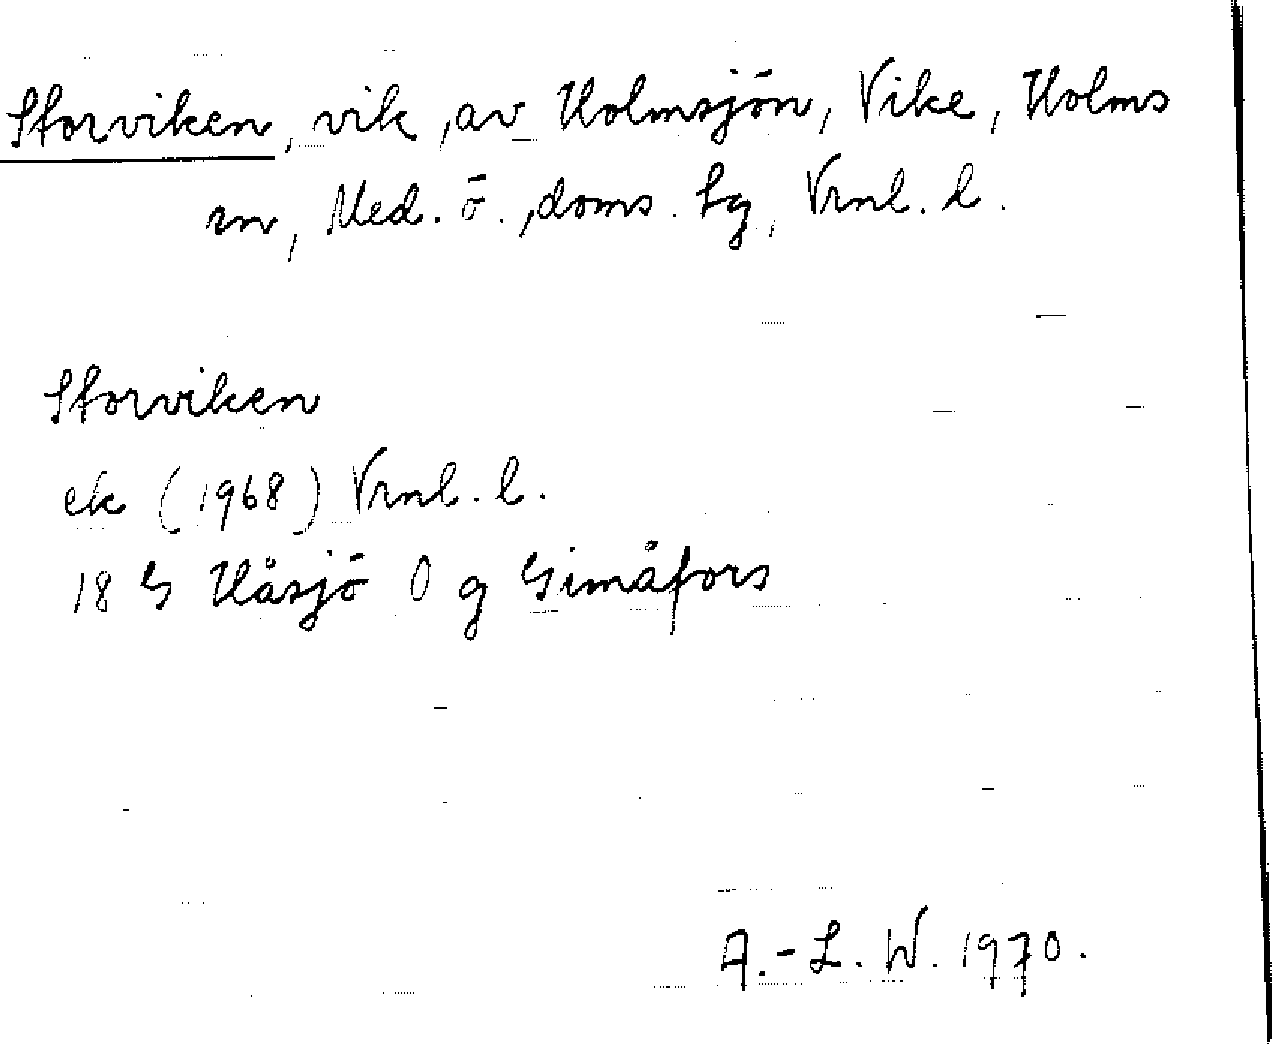 Storviken, vik, av Holmsjön, Vike, Holms
sn, Med. ö., doms. hg, Vrnl. l.
Storviken
ek (1968) Vrnl. l.
18 G Håsjö O g Gimåfors
A.-L. W. 1970.